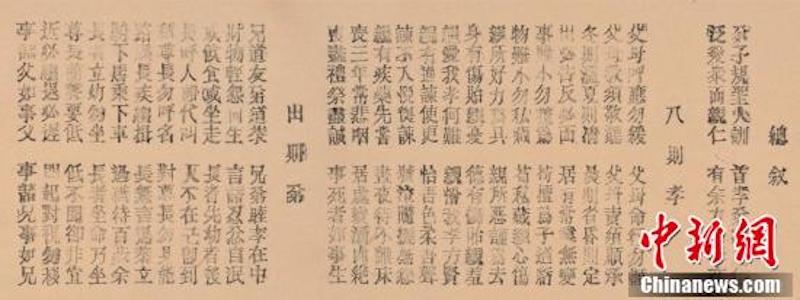 總敘
弟子規聖人訓 首孝弟
泛愛眾而親仁 有余力
入則孝
父母呼應勿緩 父母命行勿懶
父母教須敬聽 父母責須順承
冬則溫夏則凊 晨則省昏則定
出必告反必面 居有常業無變
事雖小勿擅為 苟擅為子道虧
物雖小勿私藏 苟私藏親心傷
親所好力為具 親所惡謹為去
身有傷貽親憂 德有傷貽親羞
親愛我孝何難 親憎我孝方賢
親有過諫使更 怡吾色柔吾聲
諫不入悅復諫 號泣隨撻無怨
親有疾藥先嘗 晝夜侍不離床
喪三年常悲咽 居處變酒肉絕
喪盡禮祭盡誠 事死者如事生
出則弟
兄道友弟道恭 兄弟睦孝在中
財物輕怨何生 言語忍忿自泯
或飲食或坐走 長者先幼者後
長呼人即代叫 人不在己即到
稱尊長勿呼名 對尊長勿見能
路遇長疾趨揖 長無言退恭立
騎下馬乘下車 過猶待百步余
長者立幼勿坐 長者坐命乃坐
尊長前聲要低 低不聞卻非宜
近必趨退必遲 問起對視勿移
事諸父如事父 事諸兄如事兄
中新網
Chinanews.com